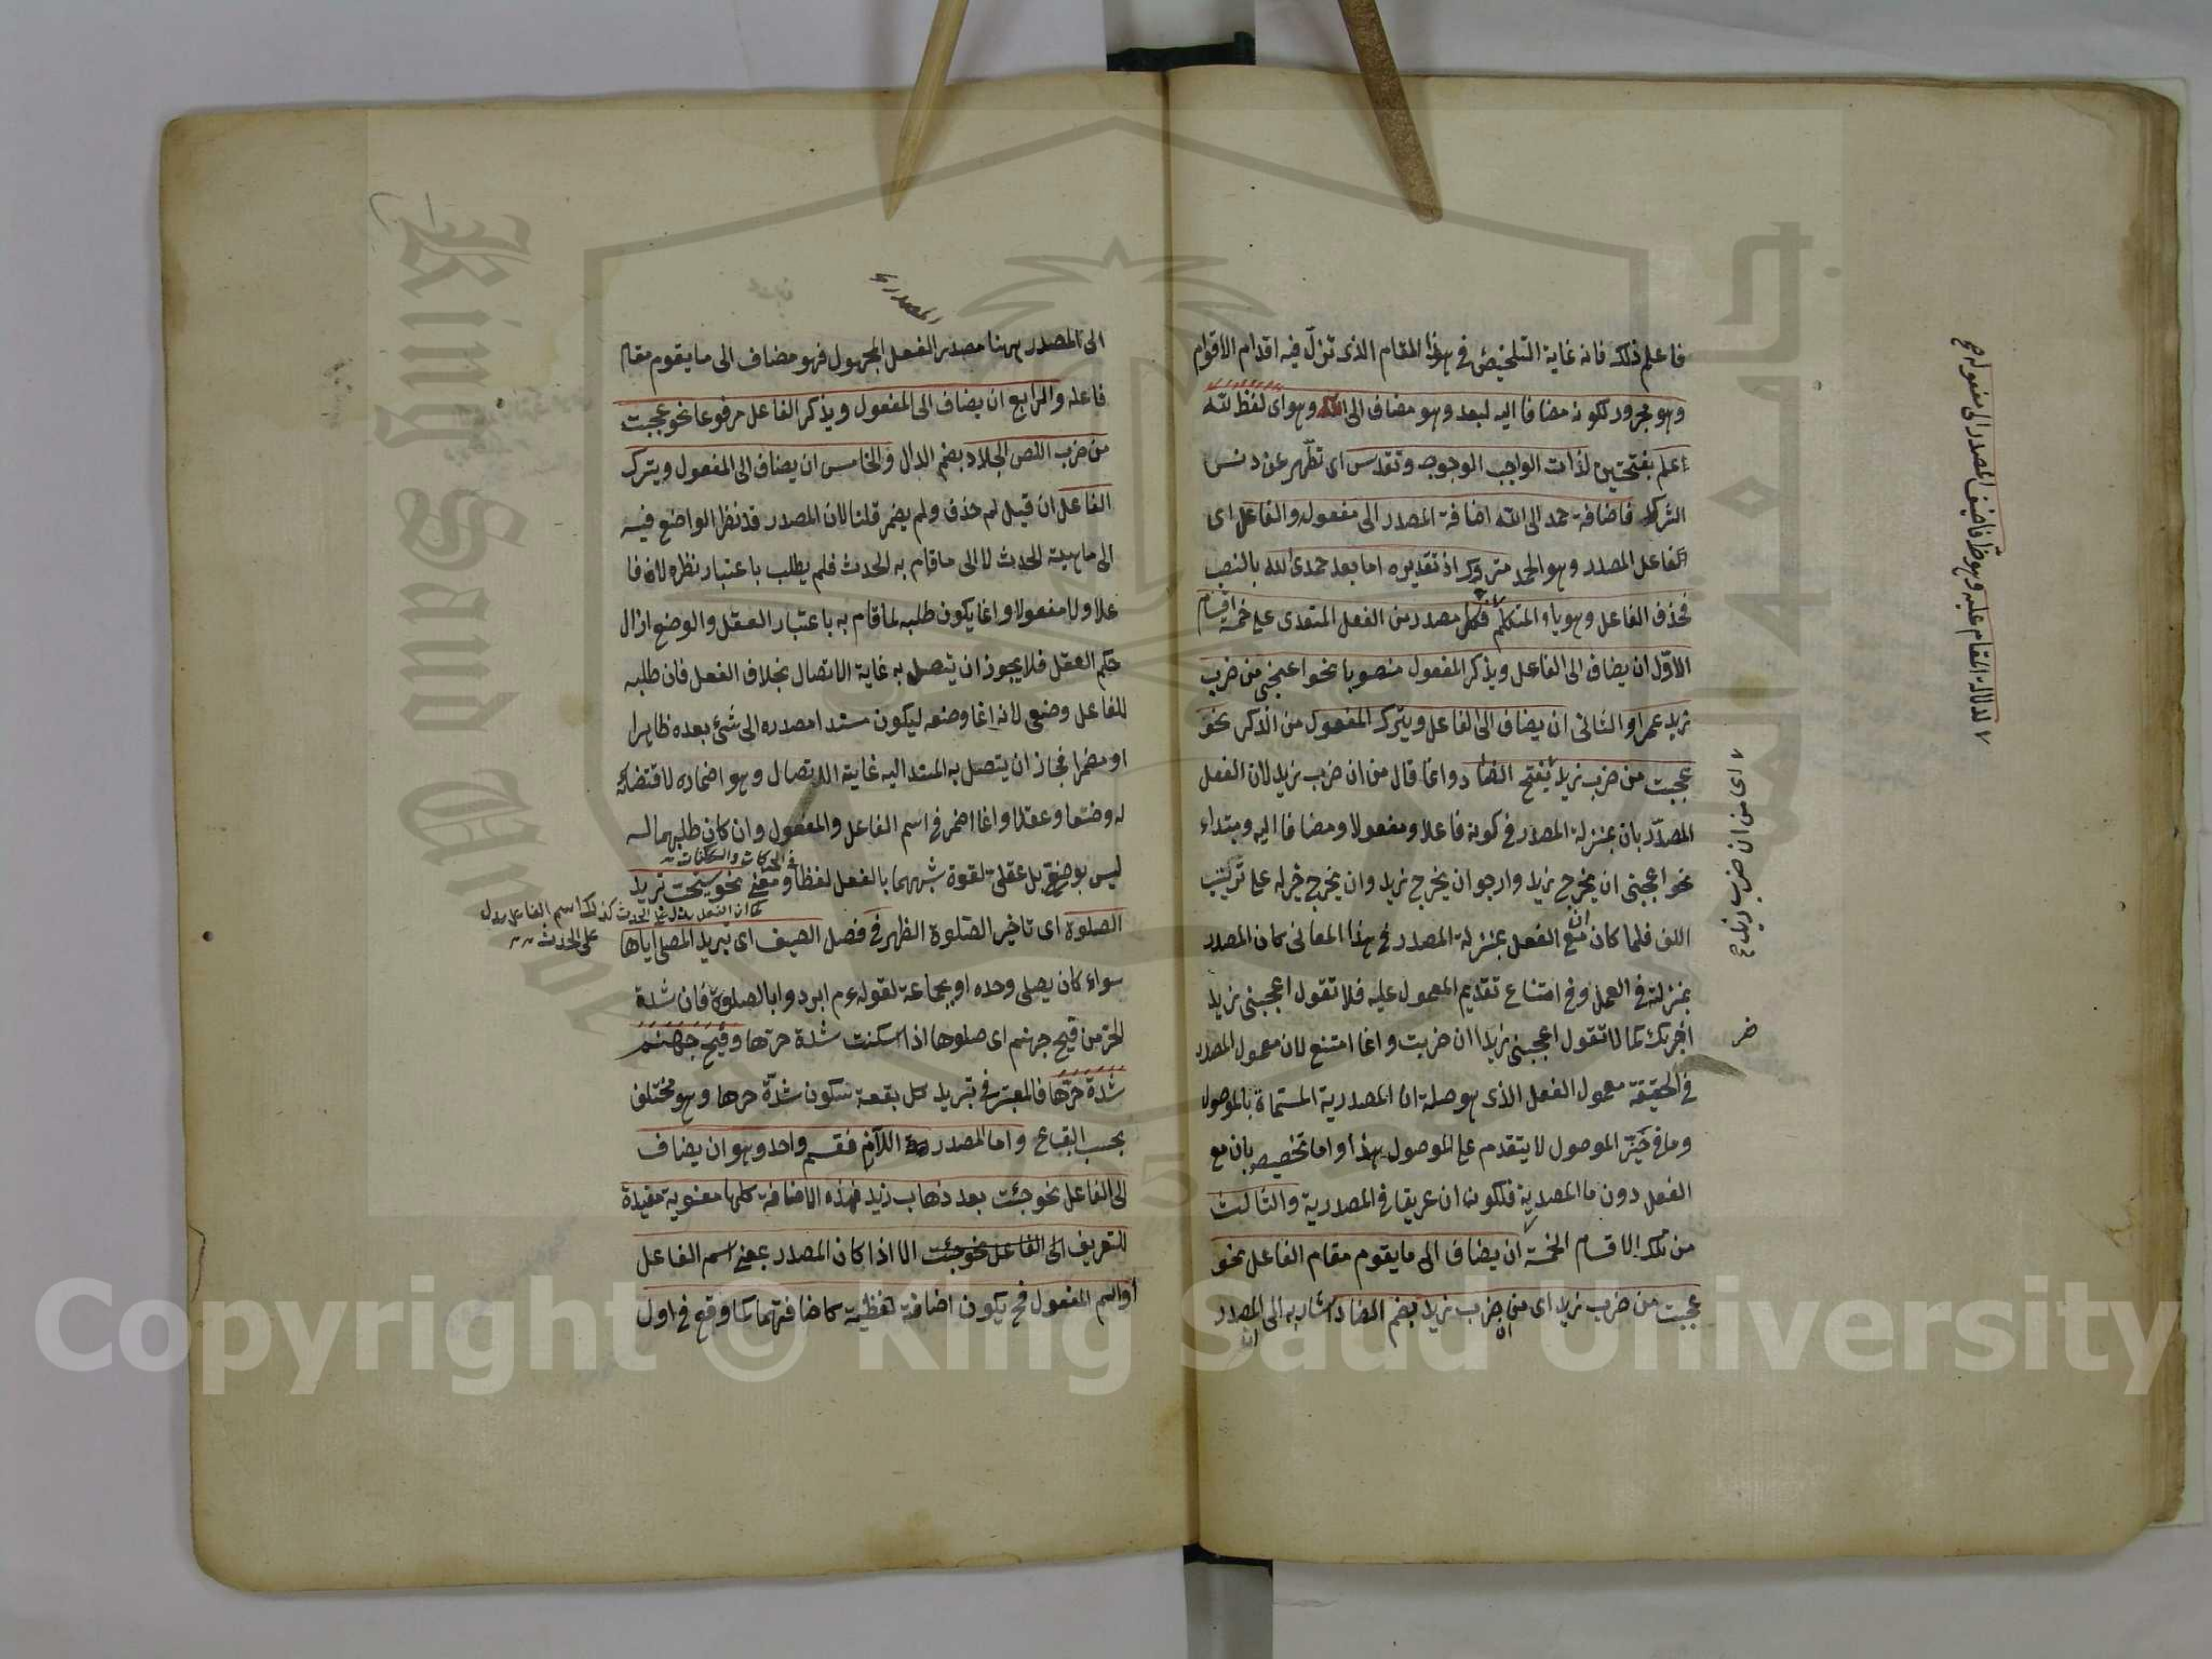 فاعلم ذلك فانه غاية التلخيص في هذا المقام الذى تزلّ فيه اقدام الاقوام
وهو مجرور لكونه مضافا اليه لبعد وهو مضاف الى الله وهو اى لفظ لله
علم بفتحتين لذات الواجب الوجود وتقدس اى تطهر عن دنس
الشرك فاضافة حمد الى الله اضافة المصدر الى مفعوله والفاعل اى
الفاعل المصدر وهو الحمد متروك اذ تقديره اما بعد حمدى الله بالنصب
فحذف الفاعل وهو ياء المتكلم فكل مصدر من الفعل المتعدى على خمسة اقسام
الاوّل ان يضاف الى الفاعل ويذكر المفعول منصوبا نحو اعجبنى من ضرب
زيد عمرا والثانى ان يضاف الى الفاعل ويترك المفعول من الذكر نحو
عجبت من ضرب زيد بفتح الضاد وانما قال من ان ضرب زيد لان الفعل
المصدّر بان بمنزلة المصدر في كونه فاعلا ومفعولا ومضافا اليه ومبتداء
نحو اعجبنى ان يخرج زيد وارجو ان يخرج زيد وان يخرج خير له على ترتيب
اللف فلما كان ان مع الفعل بمنزلة المصدر في هذا المعانى كان المصدر
بمنزلته في العمل وفي امتناع تقديم المعمول عليه فلا تقول اعجبنى زيدا
ضربك كما لا تقول اعجبنى زيدا ان ضربت وانما امتنع لان معمول المصدر
في الحقيقة معمول الفعل الذى هو صلة ان المصدرية المسماة بالموصول
وما في حيّز الموصول لا يتقدم على الموصول هذا واما تخصيص بان مع
الفعل دون ما المصدرية فلكون ان عريقا في المصدرية والثالث
من تلك الاقسام الخمسة ان يضاف الى ما يقوم مقام الفاعل نحو
عجبت من ضرب زيد اى من ان ضرب زيد بضم الضاد اشار به الى المصدر
لدلالة المقام عليه وهو فاضيف المصدر الى مفعوله
اى من ان ضرب زيد
الى المصدر ههنا مصدر الفعل المجهول فهو مضاف الى ما يقوم مقام
فاعله والرابع ان يضاف الى المفعول ويذكر الفاعل مرفوعا نحو عجبت
من ضرب اللص الجلاد بضم الدال والخامس ان يضاف الى المفعول ويترك
الفاعل ان قيل لم حذف ولم يضمر قلنا لان المصدر قد نظر الواضع فيه
الى ماهية الحدث لا الى ما قام به الحدث فلم يطلب باعتبار نظره لا فا
علا ولا مفعولا وانما يكون طلبه لما قام به باعتبار العقل والوضع ازال
حكم العقل فلا يجوز ان يتصل به غاية الاتصال بخلاف الفعل فان طلبه
للفاعل وضعى لانه انما وضعه ليكون مسندا مصدره الى شئ بعده ظاهرا
او مضمرا فجاز ان يتصل به المسند اليه غاية الاتصال وهو اضماره لاقتضائه
له وضعا وعقلا وانما اضمر في اسم الفاعل والمفعول وان كان طلبهما له
ليس بوضعى بل عقلى لقوة شبههما بالفعل لفظا في الحركات والسكنات ومعنى نحو يستحب تبريد
كما ان الفعل يدل على الحدث كذلك اسم الفاعل يدل
على الحدث
الصلوة اى تاخير الصلوة الظهر في فصل الصيف اى تبريد المصلى اياها
سواء كان يصلى وحده او بجماعة لقوله عم ابردوا بالصلوة فان شدة
الحر من فيح جهنم اى صلوها اذا سكنت شدة حرّها وفيح جهنم
شدة حرّها فالمعتبر في تبريد كل بقعة سكون شدّة حرها وهو مختلف
بحسب البقاع واما المصدر اللازم فقسم واحد وهو ان يضاف
الى الفاعل نحو جئت بعد ذهاب زيد فهذه الاضافة كلها معنوية مفيدة
للتعريف الى الفاعل نحو جئت الا اذا كان المصدر بمعنى اسم الفاعل
او اسم المفعول فح يكون اضافة لفظية كاضافتهما كما وقع في اول
Copyright © King Saud University